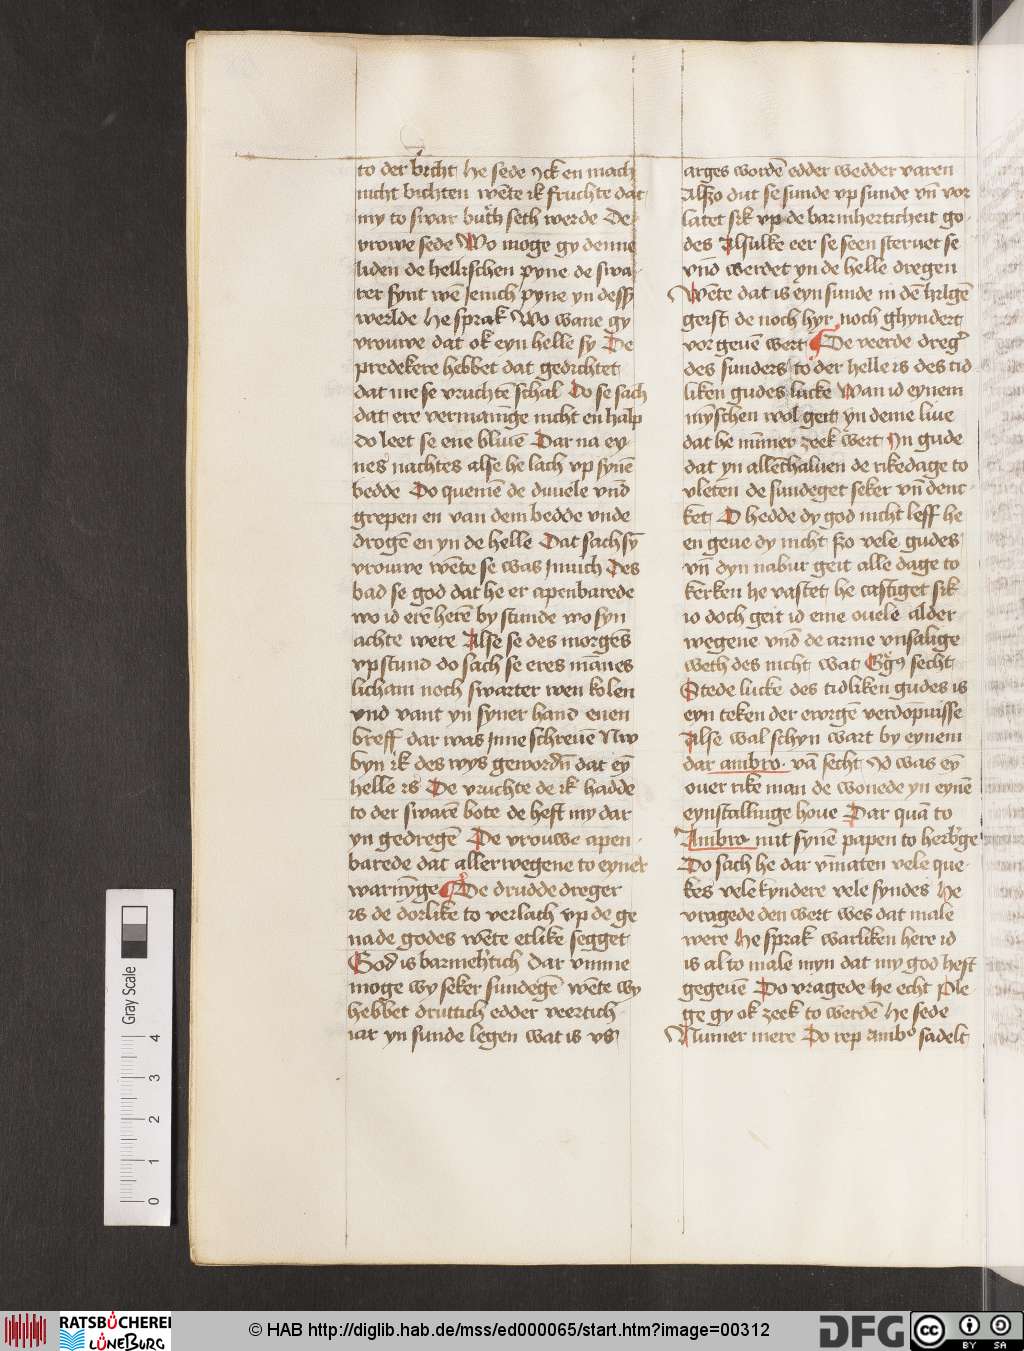 to der bicht he sede Jck en mach
nicht bichten wēte ik fruchte dat
my to swar buth seth werde De
vrowe sede Wo moge gy denne
liden de hellischen pyne de swa
rer synt wē Jenich pyne yn desß
werlde He sprak Wo wane gy
vrouwe dat ok eyn helle sy De
predekere hebbet dat gedichtet
dat me se vruchtē schal Do se sach
dat ere vermaninge nicht en halp
do leet se ene bliuē Dar na ey
nes nachtes alse he lach vp synē
bedde Do quemē de duuele vnd
grepen en van dem bedde vnde
drogē en yn de helle Dat sach sȳ
vrouwe wēte se was Jnnich Des
bad se god dat he er apenbarede
wo id erē herē by stunde wo syn
achte were Alse se des morgēs
vpstund do sach se eres mānes
licham noch swarter wen kolen
vnd vant yn syner hand enen
breff dar was Jnne schreuē Nw
byn ik des wys gewordn dat eȳ
helle is De vruchte de ik hadde
to der swarē bote de heft my dar
yn gedregē De vrouwe apen
barede dat aller wegene to eyner
warnȳge De drudde dreger
is de dorlike to verlach vp de ge
nade godes wēte etlike segget
God is barmehtich Dar vmme
moge wy seker sundegē wēte wy
hebbet druttich edder veertich
iar yn sunde legen wat is vs
arges wordē edder wedder varen
Alßo dut se sunde vp sunde vn̄ vor
latet sik vp de barmherticheit go
des Alsulke eer se seen steruet se
vnd werdet yn de helle dregen
Wēte dat is eyn sunde in dē hilgē
geist de noch hyr noch ghyndert
vorgeuē wert De veerde dreg
des sunders to der helle is des tid
liken gudes lucke Wan id eynem
mȳschen wol geit yn deme liue
dat he nūmer zeek wert Jn gude
dat yn allēthaluen de rikedage to
vletēn de sundeget seker vn̄ denc
ket O hedde dy god nicht leff he
en geue dy nicht ßo vele gudes
vn̄ dyn nabur geit alle dage to
kerken he vastet he castiget sik
io doch geit id eme ouele alder
wegene vnd de arme vnsalige
weth des nicht wat Gg9 secht
Stede lucke des tidliken gudes is
eyn teken der ewigē verdopnisse
Alse wal schyn wart by eynem
dar ambro vā secht Id was eȳ
ouer rike man de wonede yn eynē
eynstalkinge houe Dar quā to
Ambro mit synē papen to herbge
Do sach he dar vn̄maten vele que
kes vele kyndere vele syndes He
vragede den wert wes dat male
were He sprak warliken here id
is al to male myn dat my god heft
gegeuē Do vragede he echt Ple
ge gy ok zeek to werdē He sede
Numer mere Do rep amb° sadelt
Gray Scale
0 1 2 3 4
RATSBÜCHEREI
LÜNEBURG
© HAB http://diglib.hab.de/mss/ed000065/start.htm?image=00312
DFG
cc
BY SA